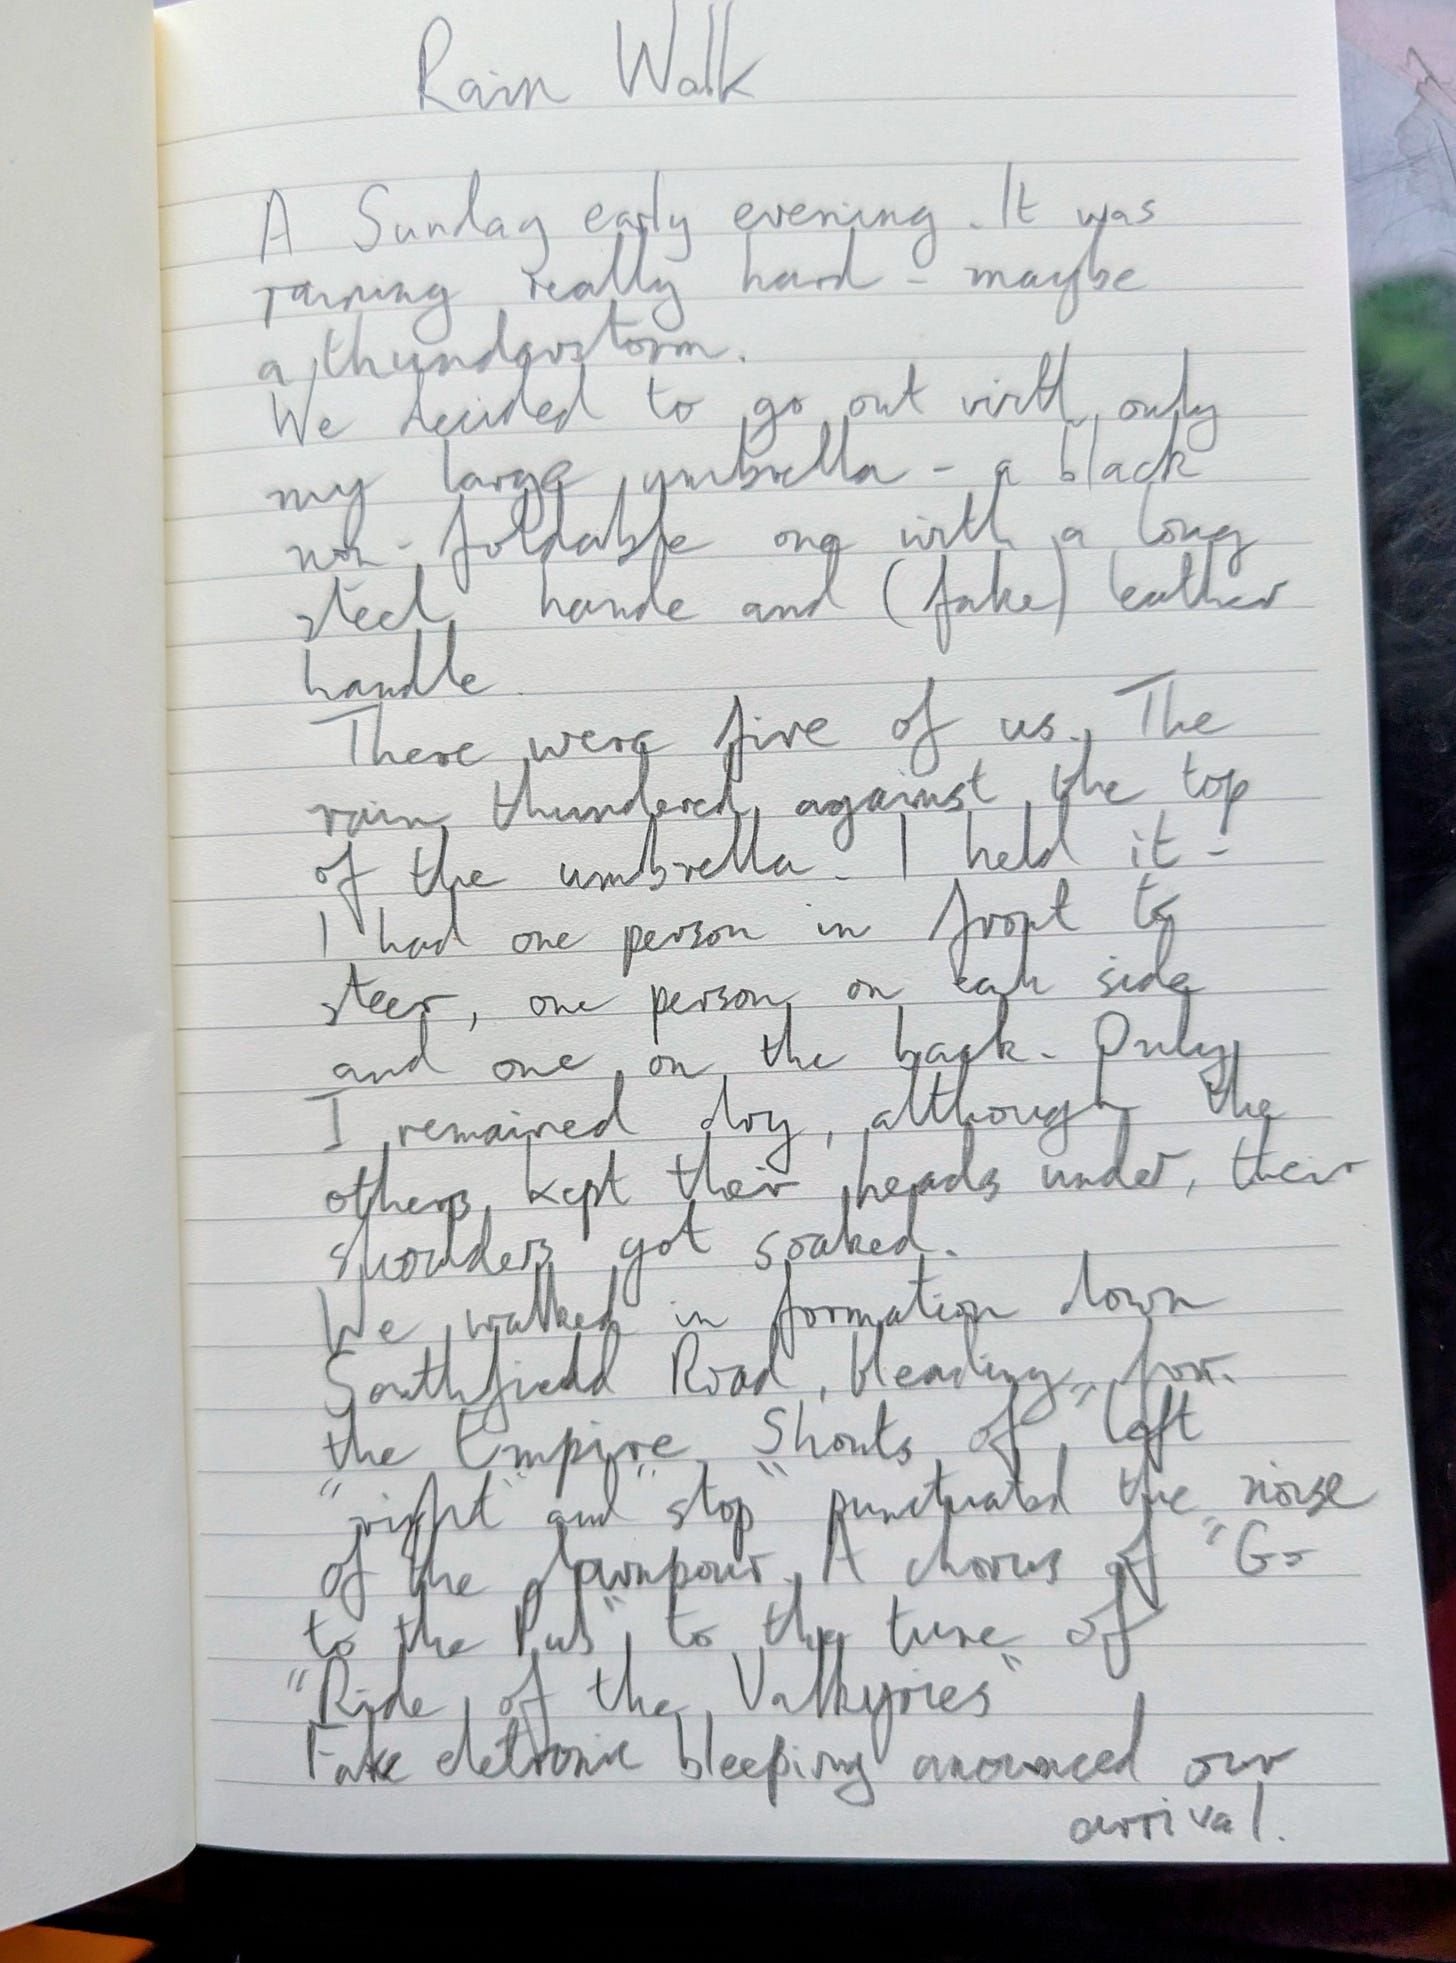 Rain Walk
A Sunday early evening. It was
raining really hard - maybe
a thunderstorm.
We decided to go out with only
my large umbrella - a black
non-foldable one with a long
steel hande and (fake) leather
handle.
There were five of us. The
rain thundered against the top
of the umbrella. I held it -
I had one person in front to
steer, one person on each side
and one on the back. Only
I remained dry, although the
others kept their heads under, their
shoulders got soaked.
We walked in formation down
Southfield Road, heading for
the Empire. Shouts of "left"
"right" and "stop" punctuated the noise
of the downpour. A chorus of "Go
to the Pub" to the tune of
"Ride of the Valkyries"
Fake eletronic bleeping anounced our
arrival.